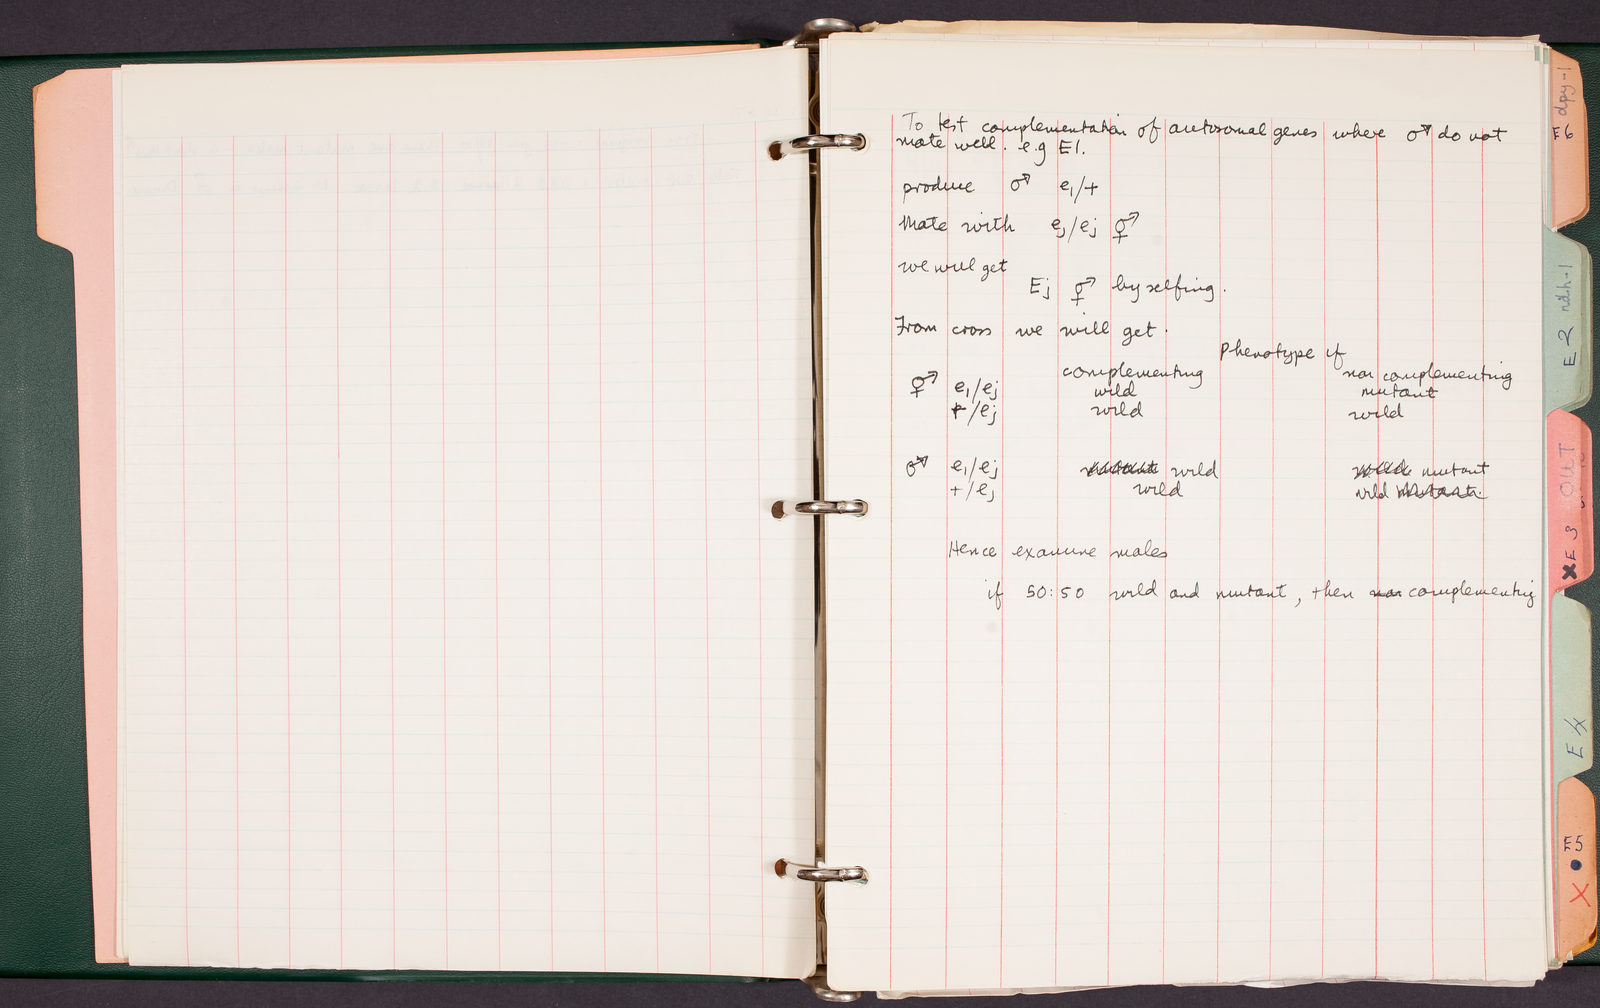 To test complementation of autosomal genes where ♂ do not
mate well. e.g E1.
produce ♂ e1/+
Mate with ej/ej ⚥
we will get
Ej ⚥ by selfing.
From cross we will get.
Phenotype if
complementing non complementing
⚥ e1/ej wild mutant
+/ej wild wild
♂ e1/ej wild mutant
+/ej wild wild mutant.
Hence examine males
if 50:50 wild and mutant, then non complementing
dpy-1
E6
E2 rdh-1
XE3 OUT
E4
E5
X